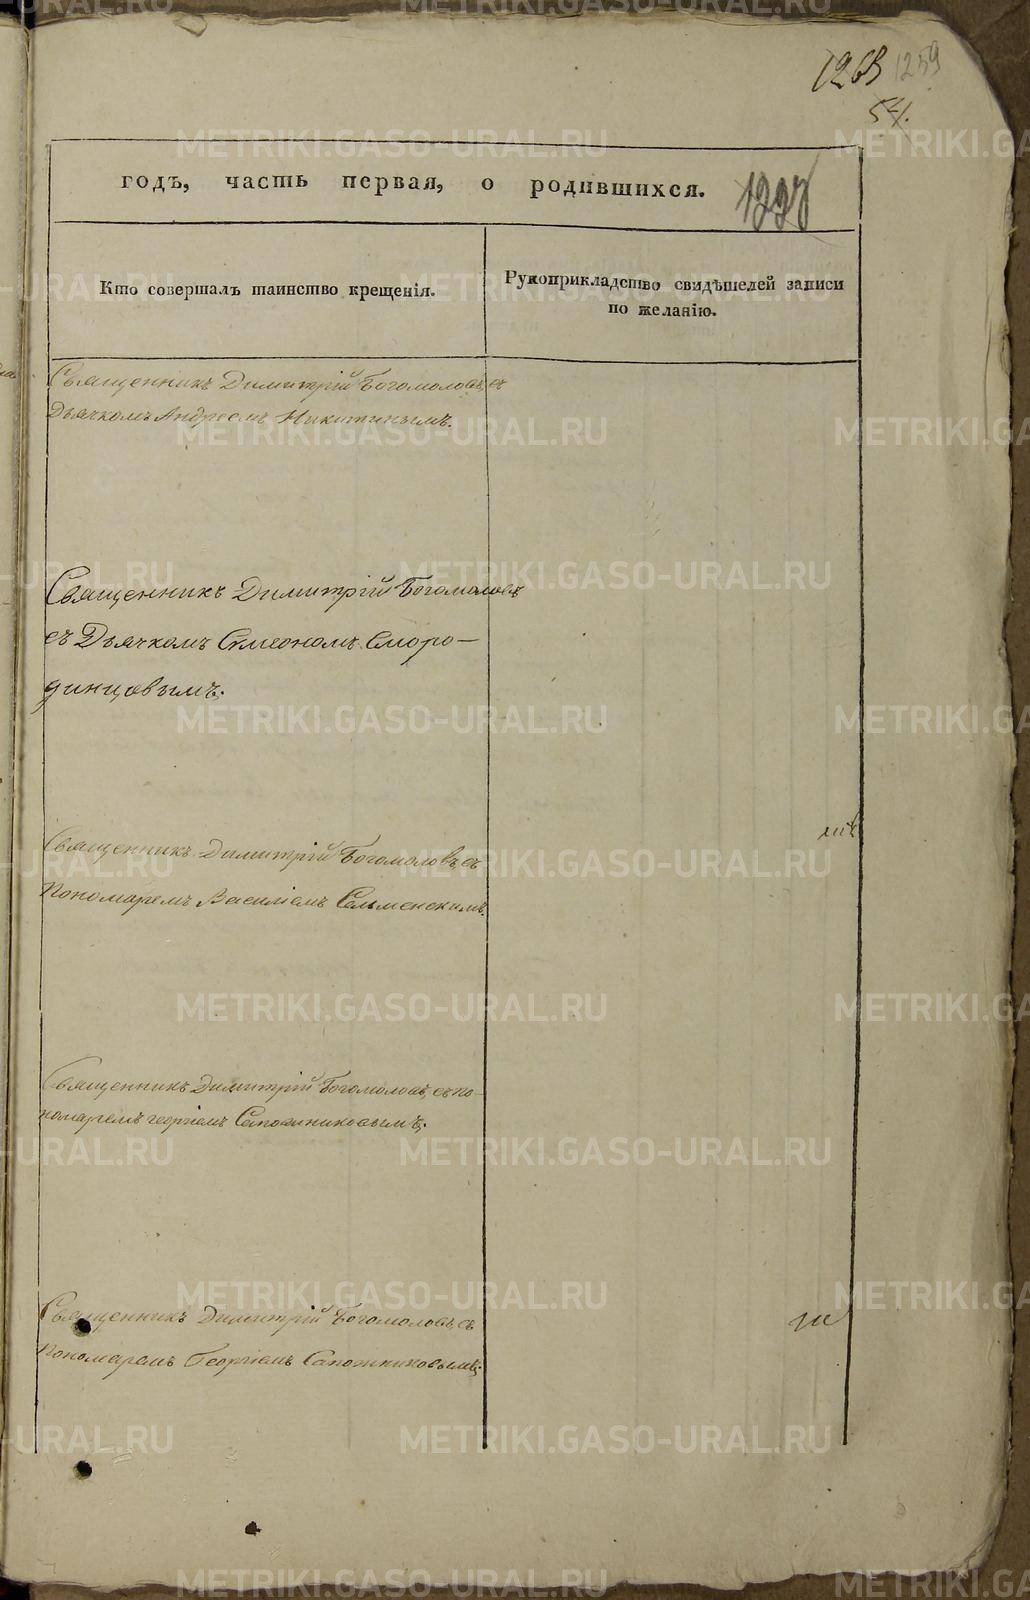 1263 1259
54.
годъ, часть первая, о родившихся.
1227
Кто совершалъ таинство крещенія.
Рукоприкладство свидѣтелей записи
по желанію.
Священникъ Димитрій Богомоловъ, съ
Дьячкомъ Андреемъ Никитинымъ.
Священникъ Димитрій Богомоловъ
съ Дьячкомъ Симеономъ Сморо-
динцовымъ.
Священникъ Димитрій Богомоловъ съ
Пономаремъ Василіемъ Сельменскимъ.
Священникъ Димитрій Богомоловъ, съ по-
номаремъ георгіемъ Сапожниковымъ.
Священникъ Димитрій Богомоловъ, съ
Пономаремъ Георгіемъ Сапожниковымъ.
METRIKI.GASO-URAL.RU